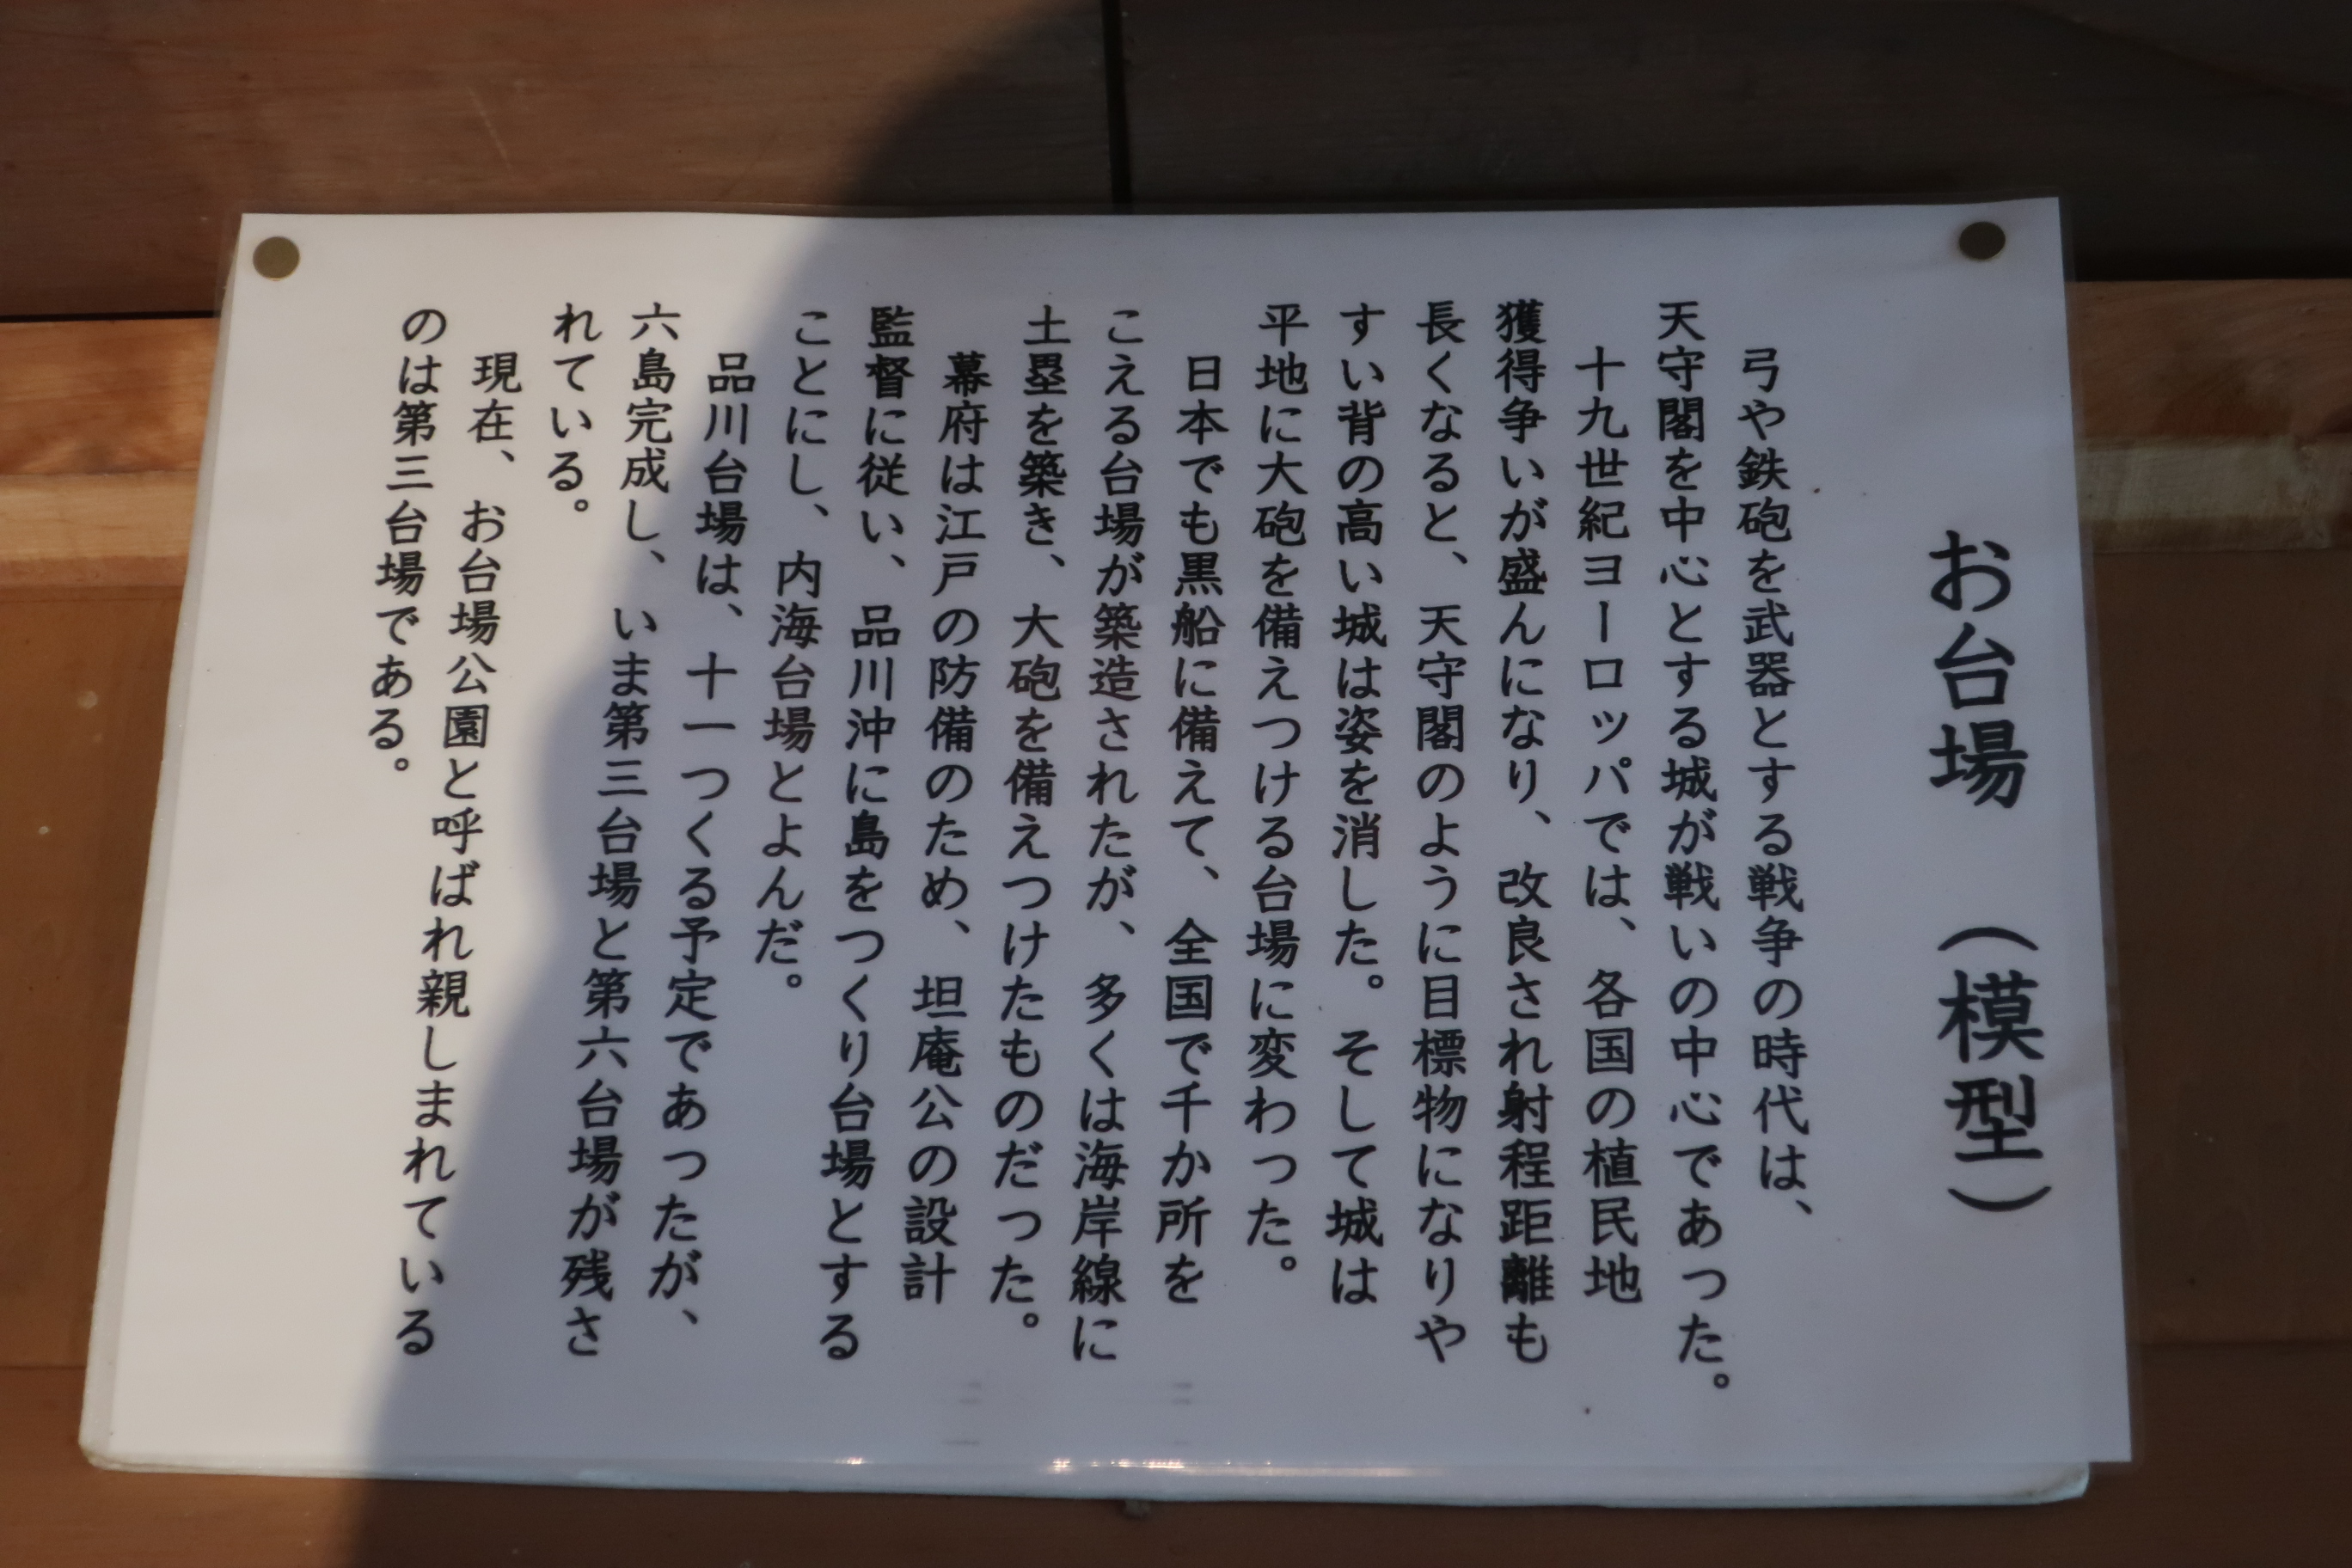 お台場　（模型）
弓や鉄砲を武器とする戦争の時代は、
天守閣を中心とする城が戦いの中心であった。
十九世紀ヨーロッパでは、各国の植民地
獲得争いが盛んになり、改良され射程距離も
長くなると、天守閣のように目標物になりや
すい背の高い城は姿を消した。そして城は
平地に大砲を備えつける台場に変わった。
日本でも黒船に備えて、全国で千か所を
こえる台場が築造されたが、多くは海岸線に
土塁を築き、大砲を備えつけたものだった。
幕府は江戸の防備のため、坦庵公の設計
監督に従い、品川沖に島をつくり台場とする
ことにし、内海台場とよんだ。
品川台場は、十一つくる予定であったが、
六島完成し、いま第三台場と第六台場が残さ
れている。
現在、お台場公園と呼ばれ親しまれている
のは第三台場である。